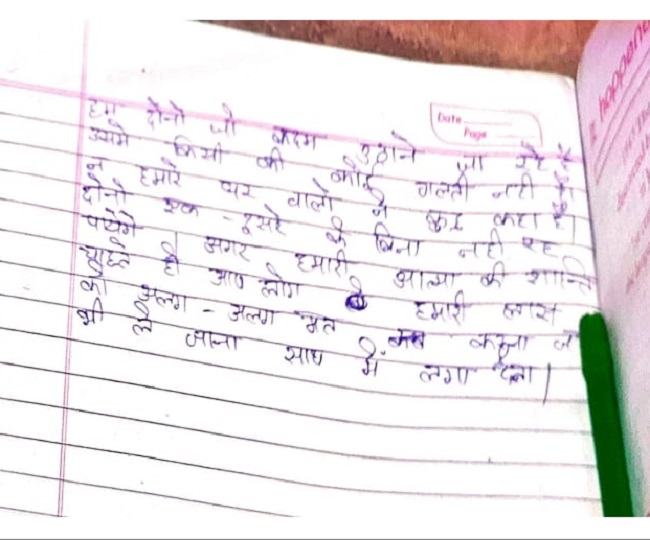 Date
Page
happene
हम दोनो जो कदम उठाने जा रहे है
उसमे किसी की कोई गलती नही है।
न हमारे घर वालो ने कुछ कहा है।
दोनो एक-दूसरे के बिना नही रह
पायेगे। अगर हमारी आत्मा की शान्ति
चाहते हो आप लोग हमारी लास
को अलग-अलग मत करना ज
भी ले जाना साथ में लगा देना।